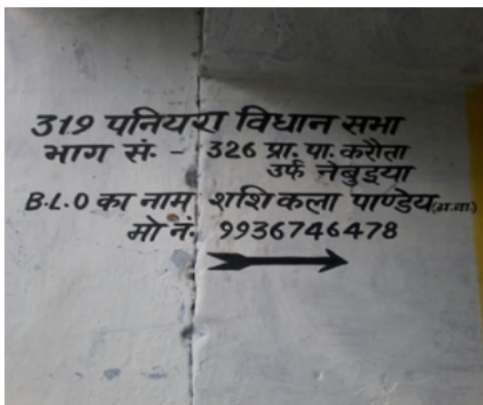 319 पनियरा विधान सभा
भाग सं. - 326 प्रा. पा. करौता
उर्फ नेबुइया
B.L.O का नाम शशिकला पाण्डेय (आ.वा.)
मो नं. 9936746478